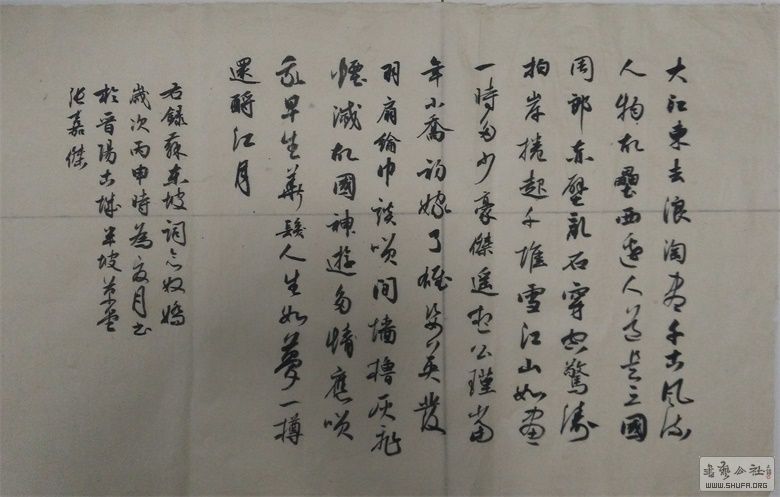 大江東去浪淘盡千古風流
人物故壘西邊人道是三國
周郎赤壁亂石穿空驚濤
拍岸捲起千堆雪江山如畫
一時多少豪傑遥想公瑾當
年小喬初嫁了雄姿英發
羽扇綸巾談咲間墻櫓灰飛
煙滅故國神遊多情應咲
我早生華髮人生如夢一樽
還酹江月
右錄蘇東坡詞念奴嬌
歲次丙申時為夏月书
於晋陽古城半坡草堂
张嘉傑
WWW.SHUFA.ORG